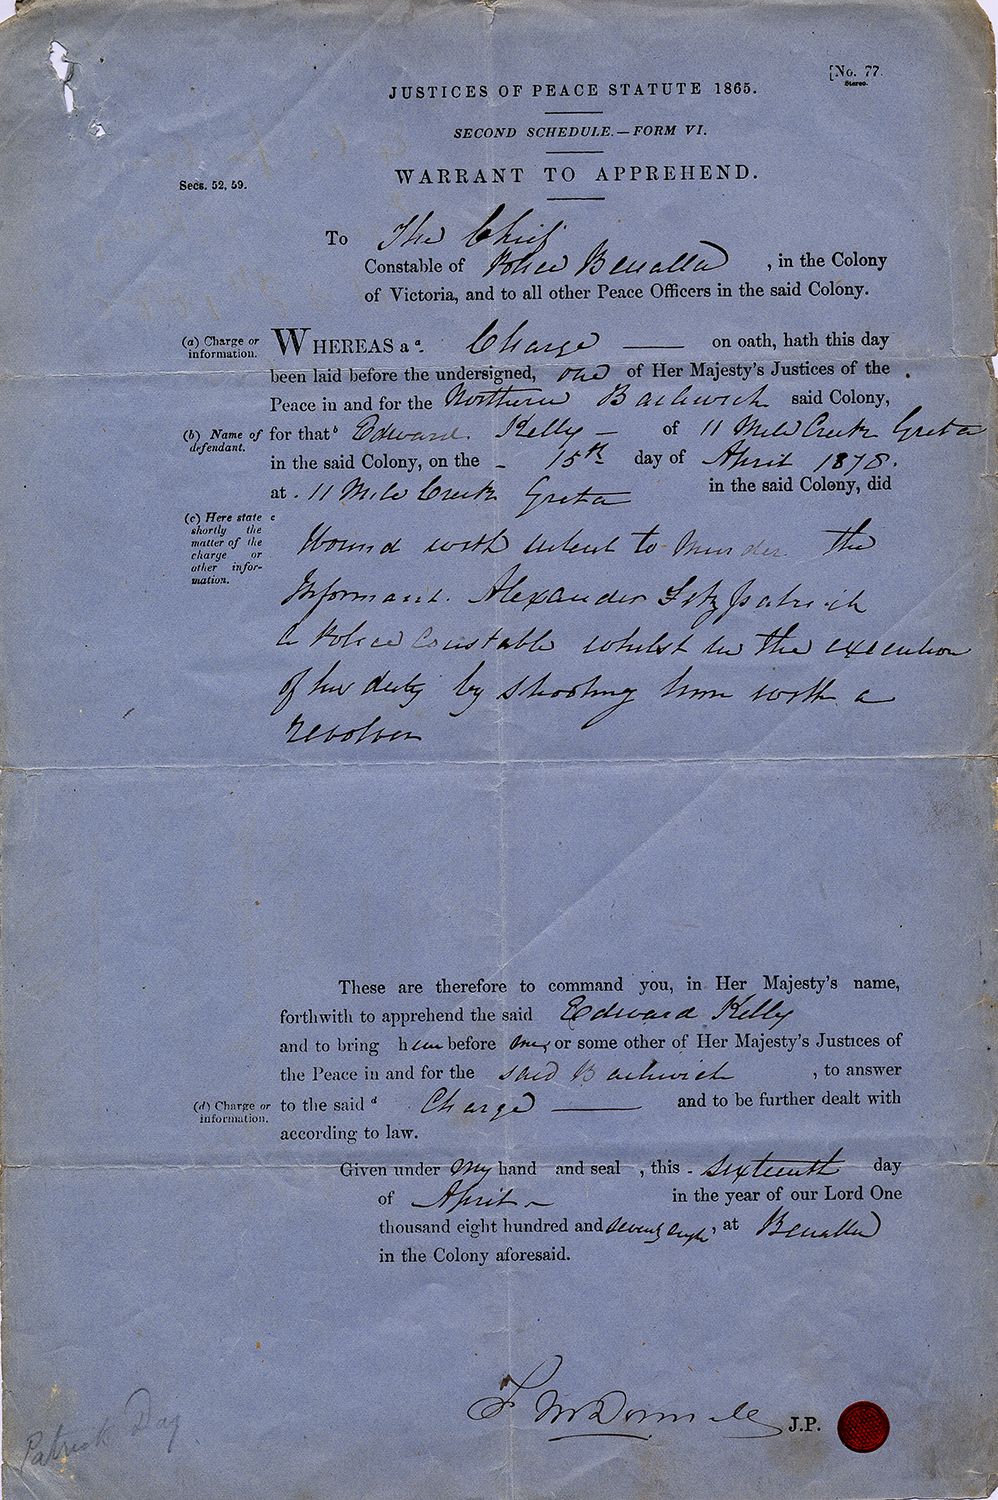 [No. 77.
Stereo.
JUSTICES OF PEACE STATUTE 1865.
SECOND SCHEDULE.—FORM VI.
WARRANT TO APPREHEND.
Secs. 52, 59.
To The Chief
Constable of Police Benalla , in the Colony
of Victoria, and to all other Peace Officers in the said Colony.
(a) Charge or
information.
WHEREAS a a. Charge — on oath, hath this day
been laid before the undersigned, one of Her Majesty's Justices of the
Peace in and for the Northern Bailiwick said Colony,
(b) Name of
defendant.
for that b Edward Kelly – of 11 Mile Creek Greta
in the said Colony, on the - 15th day of April 1878.
at . 11 Mile Creek Greta in the said Colony, did
(c) Here state
shortly the
matter of the
charge or
other infor-
mation.
c
Wound with intent to Murder the
Informant. Alexander Fitzpatrick
a Police Constable whilst in the execution
of his duty by shooting him with a
revolver
These are therefore to command you, in Her Majesty's name,
forthwith to apprehend the said Edward Kelly
and to bring him before me, or some other of Her Majesty's Justices of
the Peace in and for the said Bailiwick , to answer
(d) Charge or
information.
to the said d Charge — and to be further dealt with
according to law.
Given under My hand and seal , this - Sixteenth day
of April – in the year of our Lord One
thousand eight hundred and seventy eight, at Benalla
in the Colony aforesaid.
J.P.
Patrick Day